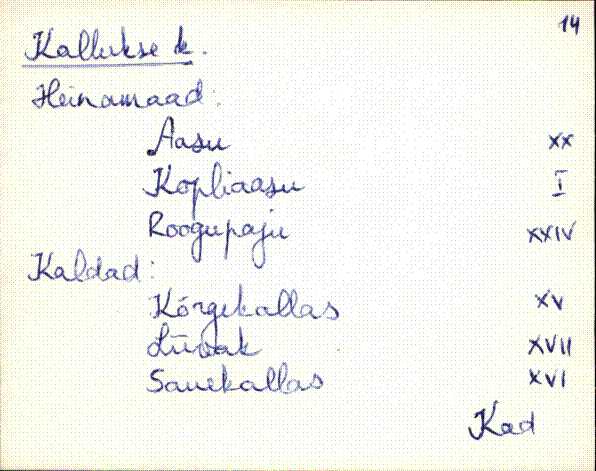 14
Kallukse k.
Heinamaad:
Aasu XX
Kopliaasu I
Roogupaju XXIV
Kaldad:
Kõrgekallas XV
Liivak XVII
Sauekallas XVI
Kad